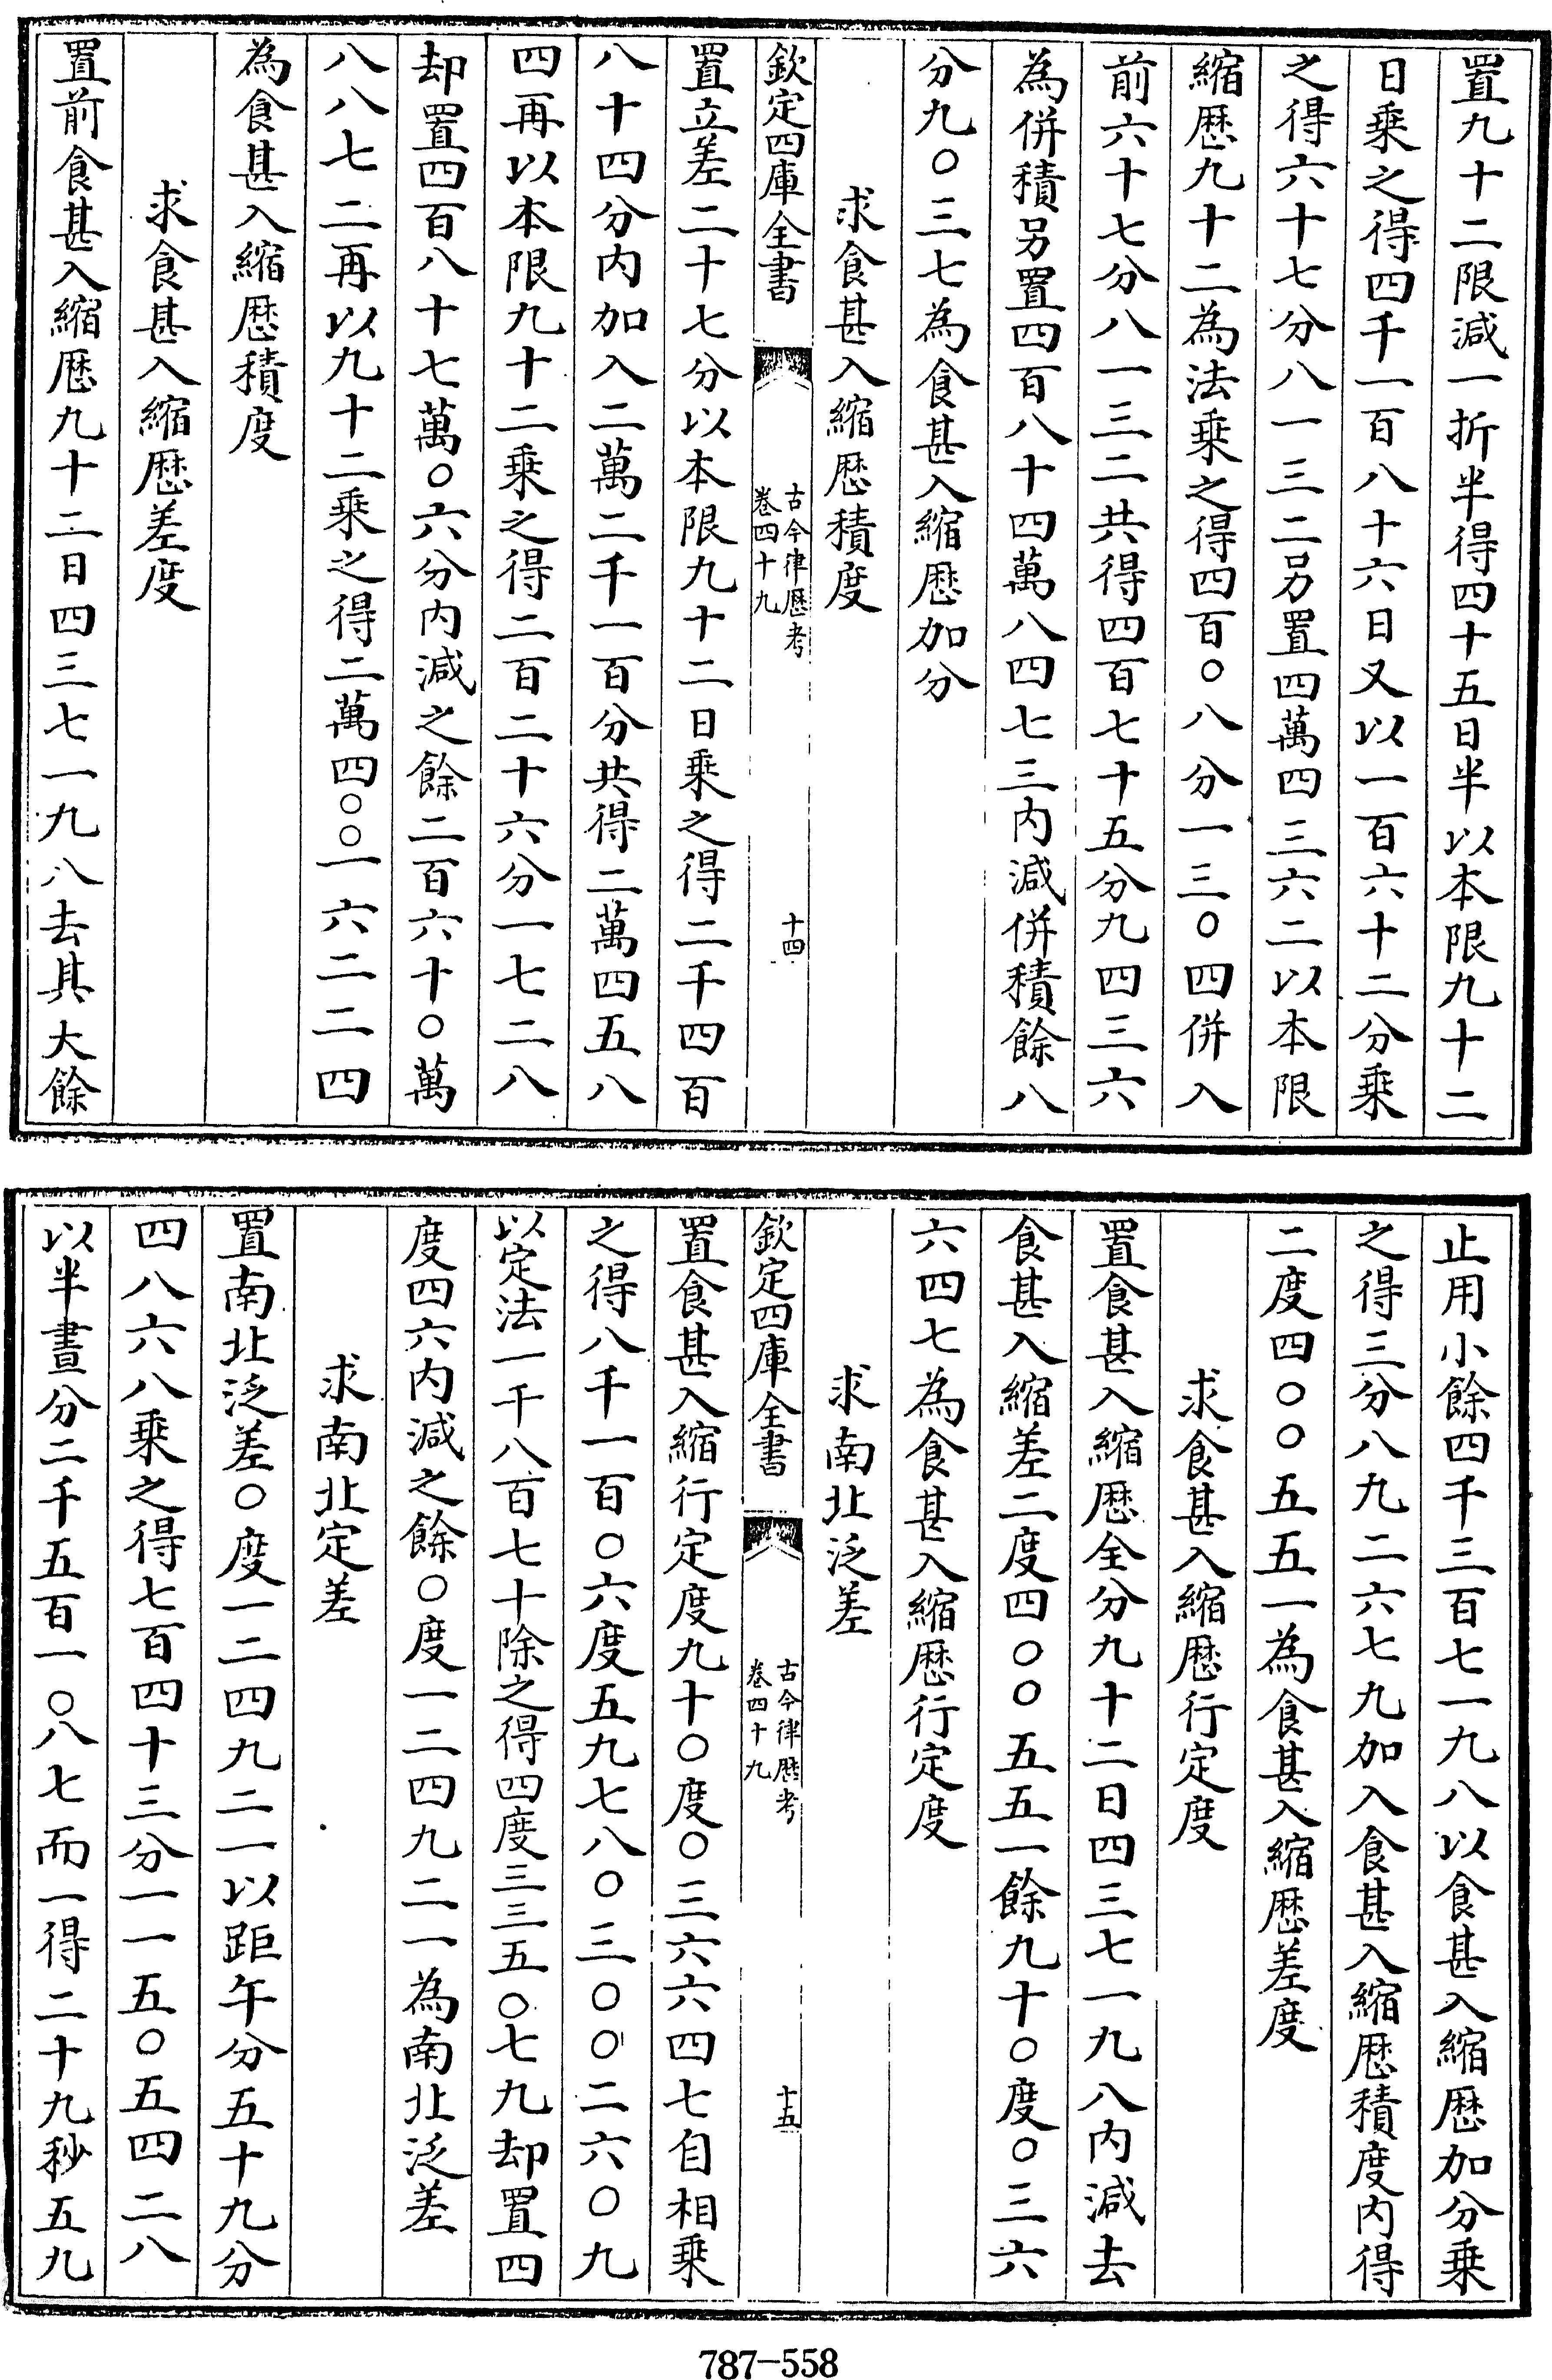 置九十二限減一折半得四十五日半以本限九十二
日乗之得四千一百八十六日又以一百六十二分乗
之得六十七分八一三二另置四萬四三六二以本限
縮歴九十二為法乗之得四百○八分一三○四併入
前六十七分八一三二共得四百七十五分九四三六
為併積另置四百八十四萬八四七三内減併積餘八
分九○三七為食甚入縮歴加分
求食甚入縮歴積度
欽定四庫全書
古今律歴考
卷四十九
十四
置立差二十七分以本限九十二日乗之得二千四百
八十四分内加入二萬二千一百分共得二萬四五八
四再以本限九十二乗之得二百二十六分一七二八
却置四百八十七萬○六分内減之餘二百六十○萬
八八七二再以九十二乗之得二萬四○○一六二二四
為食甚入縮歴積度
求食甚入縮歴差度
置前食甚入縮歴九十二日四三七一九八去其大餘
止用小餘四千三百七一九八以食甚入縮歴加分乗
之得三分八九二六七九加入食甚入縮歴積度内得
二度四○○五五一為食甚入縮歴差度
求食甚入縮歴行定度
置食甚入縮歴全分九十二日四三七一九八内減去
食甚入縮差二度四○○五五一餘九十○度○三六
六四七為食甚入縮歴行定度
求南北泛差
欽定四庫全書
古今律歴考
卷四十九
十五
置食甚入縮行定度九十○度○三六六四七自相乗
之得八千一百○六度五九七八○三○○二六○九
以定法一千八百七十除之得四度三三五○七九却置四
度四六内減之餘○度一二四九二一為南北泛差
求南北定差
置南北泛差○度一二四九二一以距午分五十九分
四八六八乗之得七百四十三分一一五○五四二八
以半晝分二千五百一○八七而一得二十九秒五九
787-558